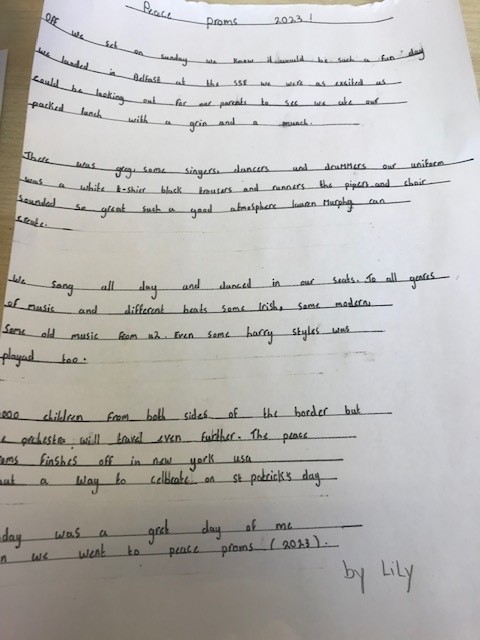 Peace proms 2023!
Off we set on sunday we knew it would be such a fun day
we landed in Belfast at the SSE we were as excited as
could be looking out for our parents to see we ate our
packed lunch with a grin and a munch.
There was greg, some singers, dancers and drummers our uniform
was a white t-shirt black trousers and runners the pipers and choir
sounded so great such a good atmosphere lauren Murphy can
create.
We sang all day and danced in our seats. To all genres
of music and different beats some Irish, some modern,
Some old music from u2. Even some harry styles was
played too.
000 children from both sides of the border but
orchestra will travel even further. The peace
oms finshes off in new york usa
a way to celbrate on st patrick's day
day was a gret day of me
n we went to peace proms (2023).
by LiLy